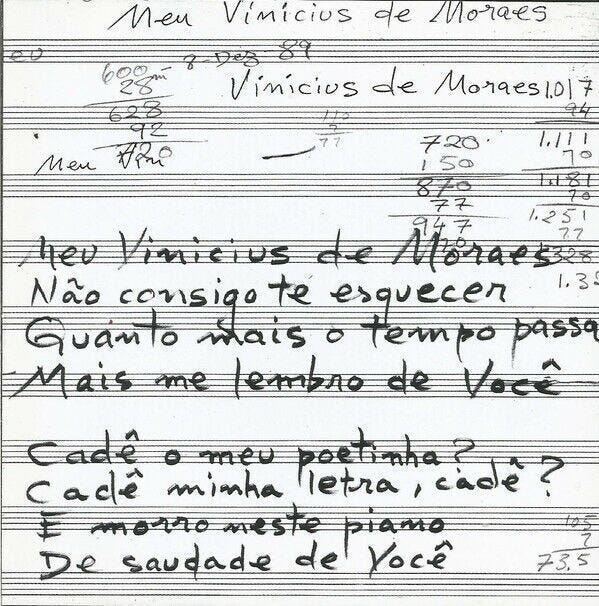 Meu Vinicius de Moraes
eu
8-Dez 89
Vinicius de Moraes
600
28
628
92
720
Meu Vini
110
7
77
720
150
870
77
947
1.017
94
1.111
70
1.181
70
1.251
77
328
Meu Vinicius de Moraes
Não consigo te esquecer
Quanto mais o tempo passa
Mais me lembro de Você
Cadê o meu poetinha?
Cadê minha letra, cadê?
E morro neste piano
De saudade de Você
105
7
73.5